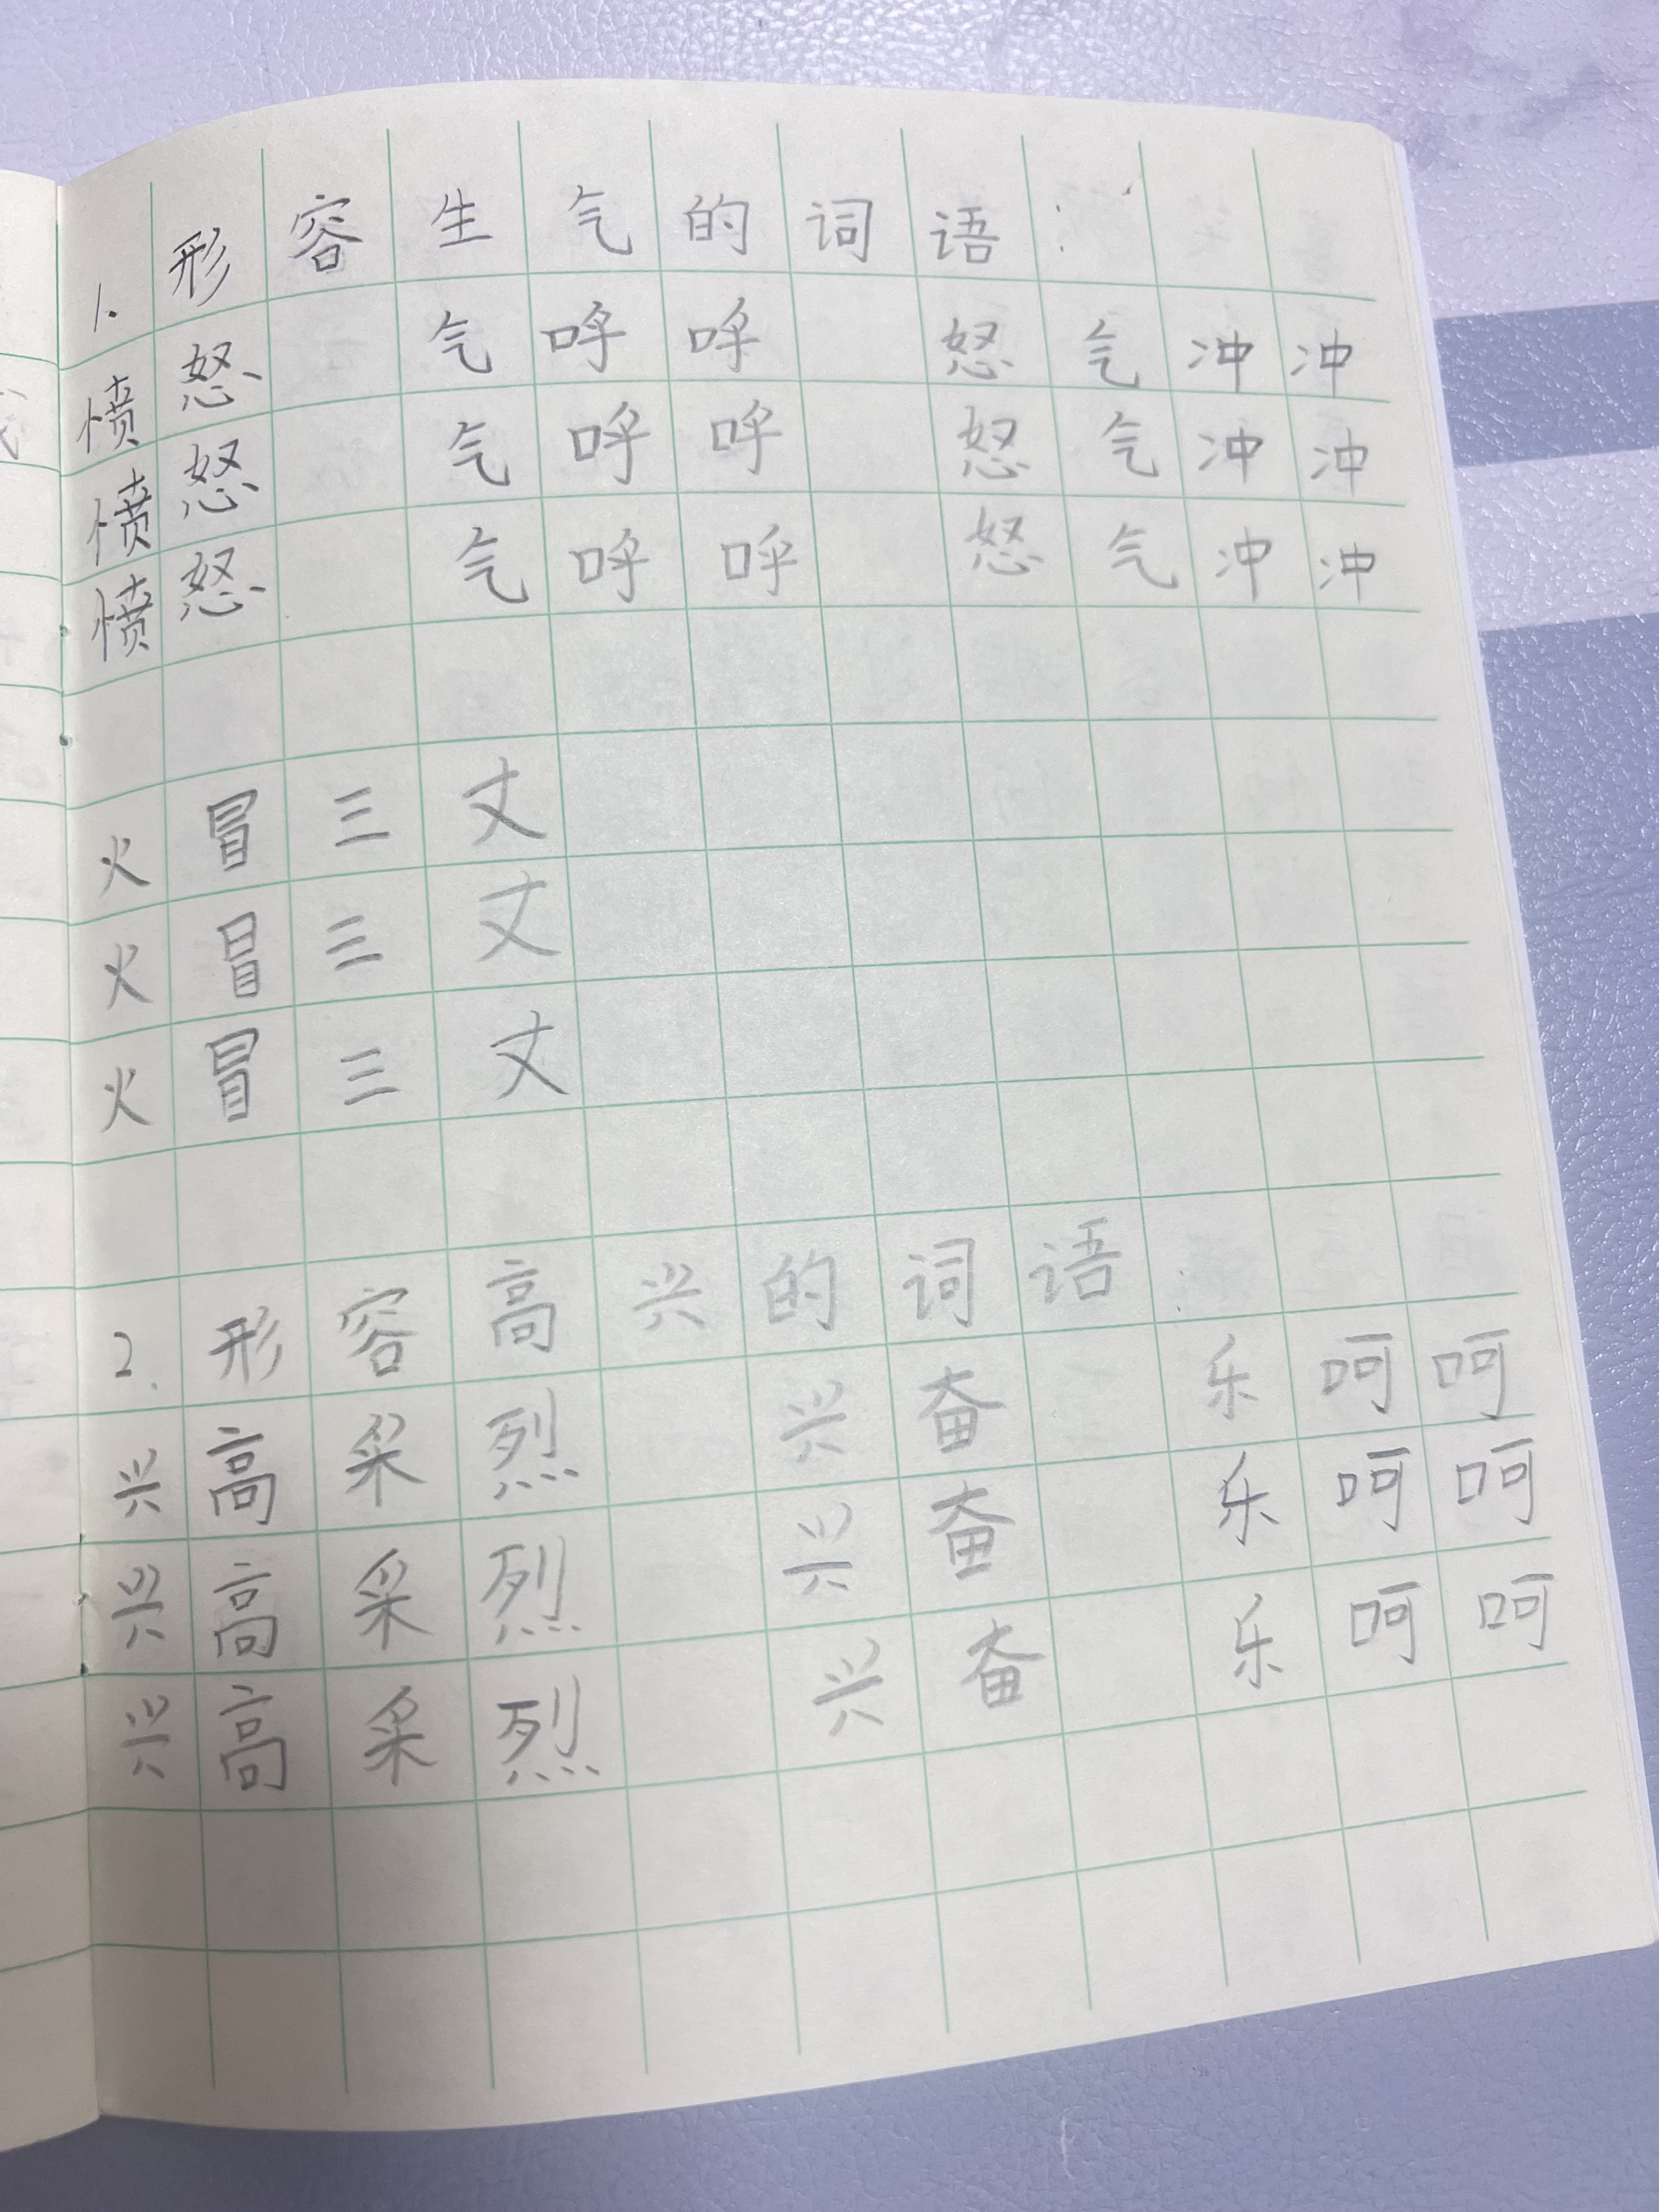 1.形容生气的词语:
愤怒 气呼呼 怒气冲冲
愤怒 气呼呼 怒气冲冲
愤怒 气呼呼 怒气冲冲
火冒三丈
火冒三丈
火冒三丈
2.形容高兴的词语:
兴高采烈 兴奋 乐呵呵
兴高采烈 兴奋 乐呵呵
兴高采烈 兴奋 乐呵呵